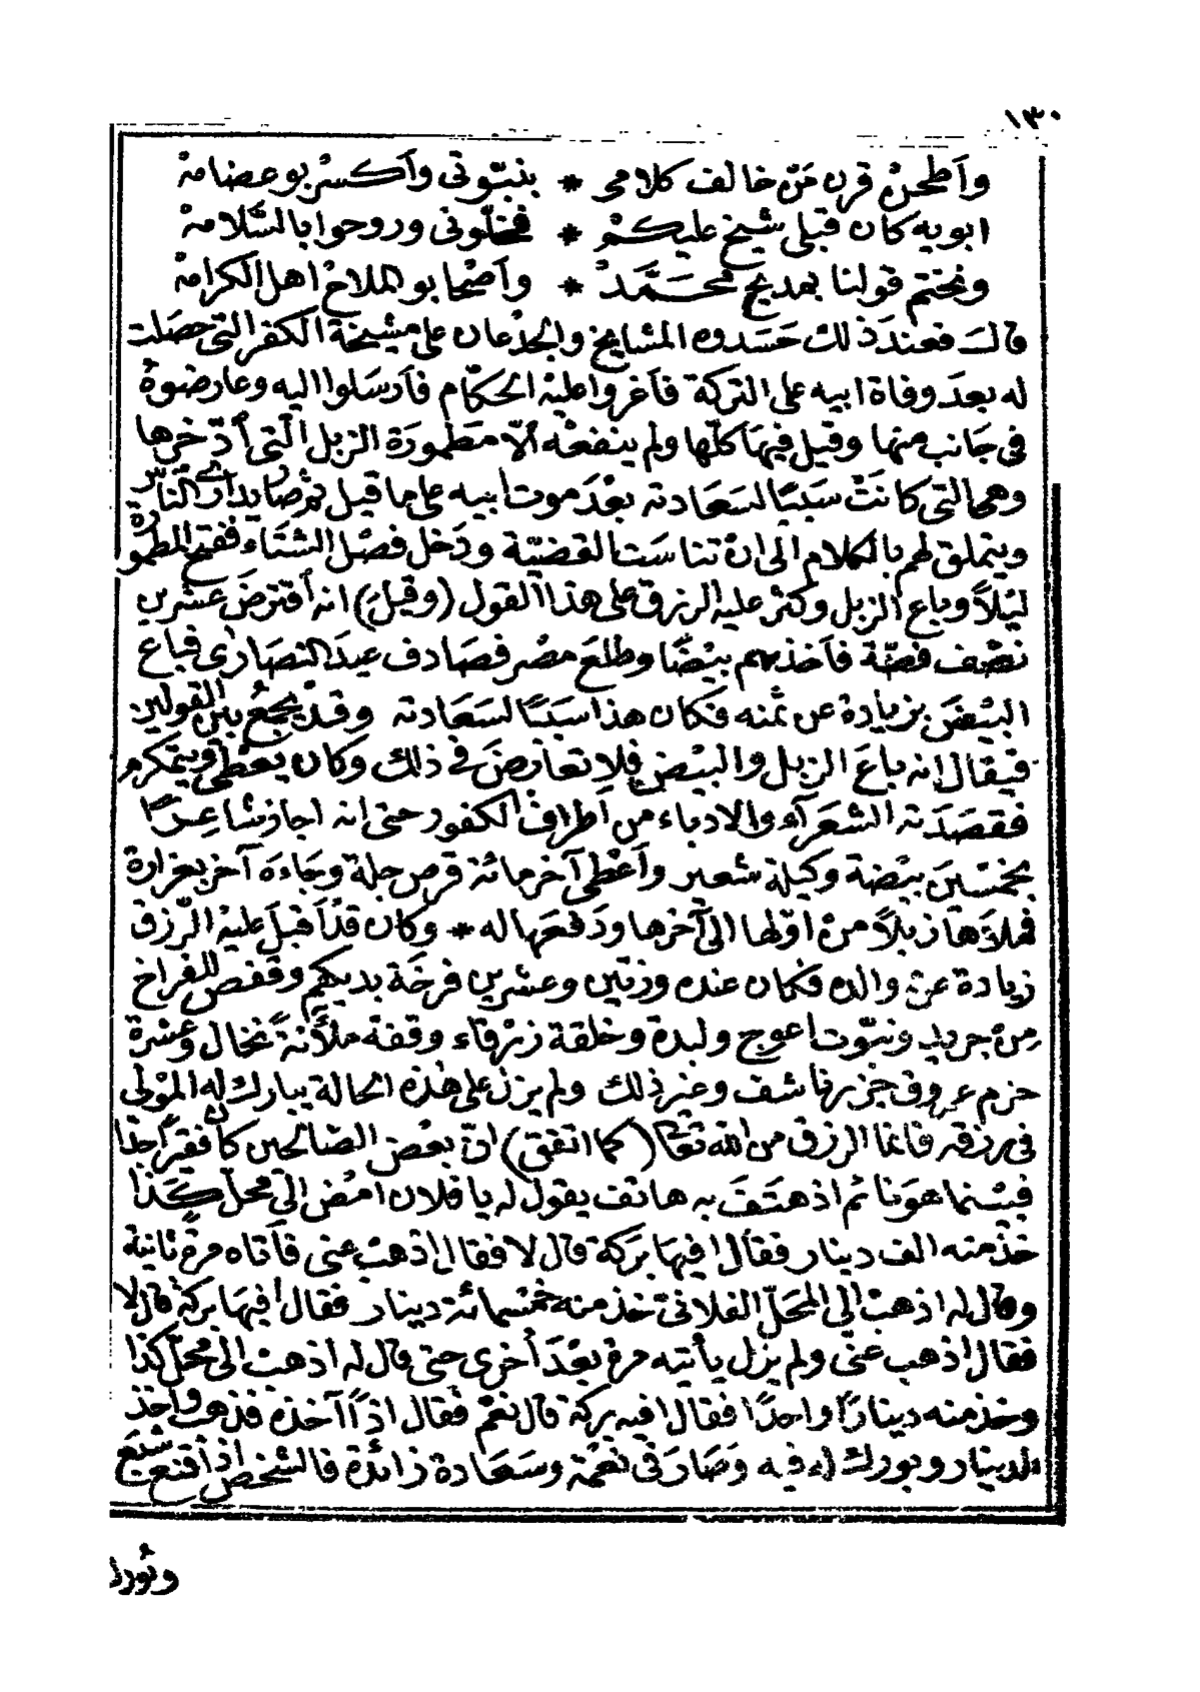 ١٣٠
وأطحنْ قرن مَنْ خالف كلامى * بنبّوتى وأكسر بو عضامهْ
ابويه كان قبلى شيخ عليكمْ * فخلّونى وروحوا بالسَّلامهْ
ونختم قولنا بمديح محمَّدْ * وأصْحابو الملاحْ اهل الكرامهْ
قال فعند ذلك حَسَدوه المشايخ والجدعان على مشيخة الكفر التى حصَلت
له بعدَ وفاة ابيه على التركة فأغروا عليْه الحكّام فأرسَلوا اليه وعارضوهُ
فى جَانب منها وقيل فيهَا كلّها ولم ينفعْه ألّا مَطمورَة الزبل الّتى أدّخرها
وهى التى كانَتْ سَببًا لسَعَادته بعْدَ موت ابيه على ما قيل ثم صَار يدارى النّاسْ
ويتملق لهم بالكلام الى انْ تناسَت القضيّة ودَخل فصْل الشتَاء ففتح المطمورة
ليْلاً وباع الزبل وكثر عليه الرزق على هذا القول (وقيلَ) انه أقترضَ عشْرين
نصْف فضّة فأخذ بهم بيْضًا وطلعَ مصْر فصَادف عيدَ النصَارى فباع
البيْضَ بزيادة عن ثمنه فكان هذا سَببًا لسَعَادته وقدْ يجْمَعُ بيْن القولين
فيقال انه باعَ الزبل والبيْض فلا تعارضَ فى ذلك وكان يعْطى ويتكرم
فقصَدَته الشعَرآء والادباء من أطراف الكفور حتى انه اجاز شاعِرًا
بخمْسينَ بيْضة وكيلة شعير وأعْطى آخر مائة قرص جلة وجَاءَه آخر بغرارة
فملاَهَا زبلاً منْ اوّلها الى آخرها ودَفعَها له * وكان قدْ أقبلَ عليْه الرّزق
زيادة عنْ والده فكان عنده وزتين وعشْرين فرخَة بديكهم وقفص للفراخ
مِنْ جريد ونبّوت اعوج ولبدة وخلقة زرْقاء وقفة ملأنة نخال وعشرة
حزم عروق جزر ناشف وغير ذلك ولم يزل على هٰذه الحالة يبارك له المَوْلى
فى رزقه فانما الرزق من الله تعَالى (كما اتفق) انّ بعْض الصَّالحين كان فقيرًا جدًا
فبيْنما هوَ نائم اذ هتَفَ به هاتف يقول له يا فلان امْض الى محلّ كَذا
خذ منه الف دينار فقال افيهَا بَركة قال لا فقال اذهبْ عنى فأتاه مرةً ثانية
وقال له اذهبْ الى المحَلّ الفلانى تخذ منه خمسمائة دينار فقال أفيهَا بركة قال لا
فقال اذهب عنى ولم يزل يأتيه مرة بعْدَ أخرى حتى قال له اذهبْ الى محلّ كذا
وخذ منه دينارًا واحدًا فقال افيه بركة قال نعَمْ فقال اذًا آخذه فذهبَ واخذ
الدينار وبورك له فيه وَصَارَ فى نعْمة وسَعادة زائدة فالشخص اذا قنع شبَع
وتورد